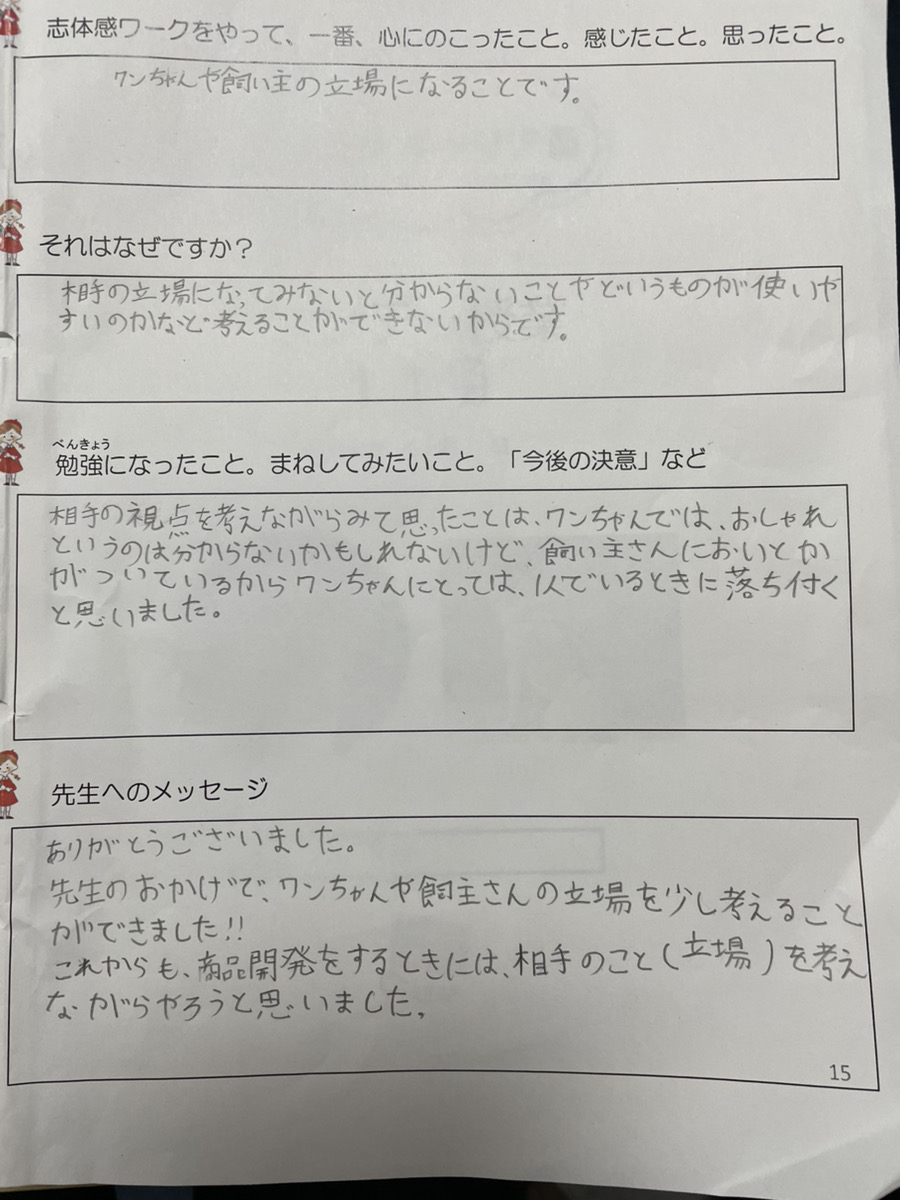 志体感ワークをやって、一番、心にのこったこと。感じたこと。思ったこと。
ワンちゃんや飼い主の立場になることです。
それはなぜですか？
相手の立場になってみないと分からないことやどいうものが使いや
すいのかなど考えることができないからです。
べんきょう
勉強になったこと。まねしてみたいこと。「今後の決意」など
相手の視点を考えながらみて思ったことは、ワンちゃんでは、おしゃれ
というのは分からないかもしれないけど、飼い主さんにおいとか
がついているからワンちゃんにとっては、1人でいるときに落ち付く
と思いました。
先生へのメッセージ
ありがとうございました。
先生のおかげで、ワンちゃんや飼主さんの立場を少し考えること
ができました!!
これからも、商品開発をするときには、相手のこと(立場)を考え
ながらやろうと思いました。
15